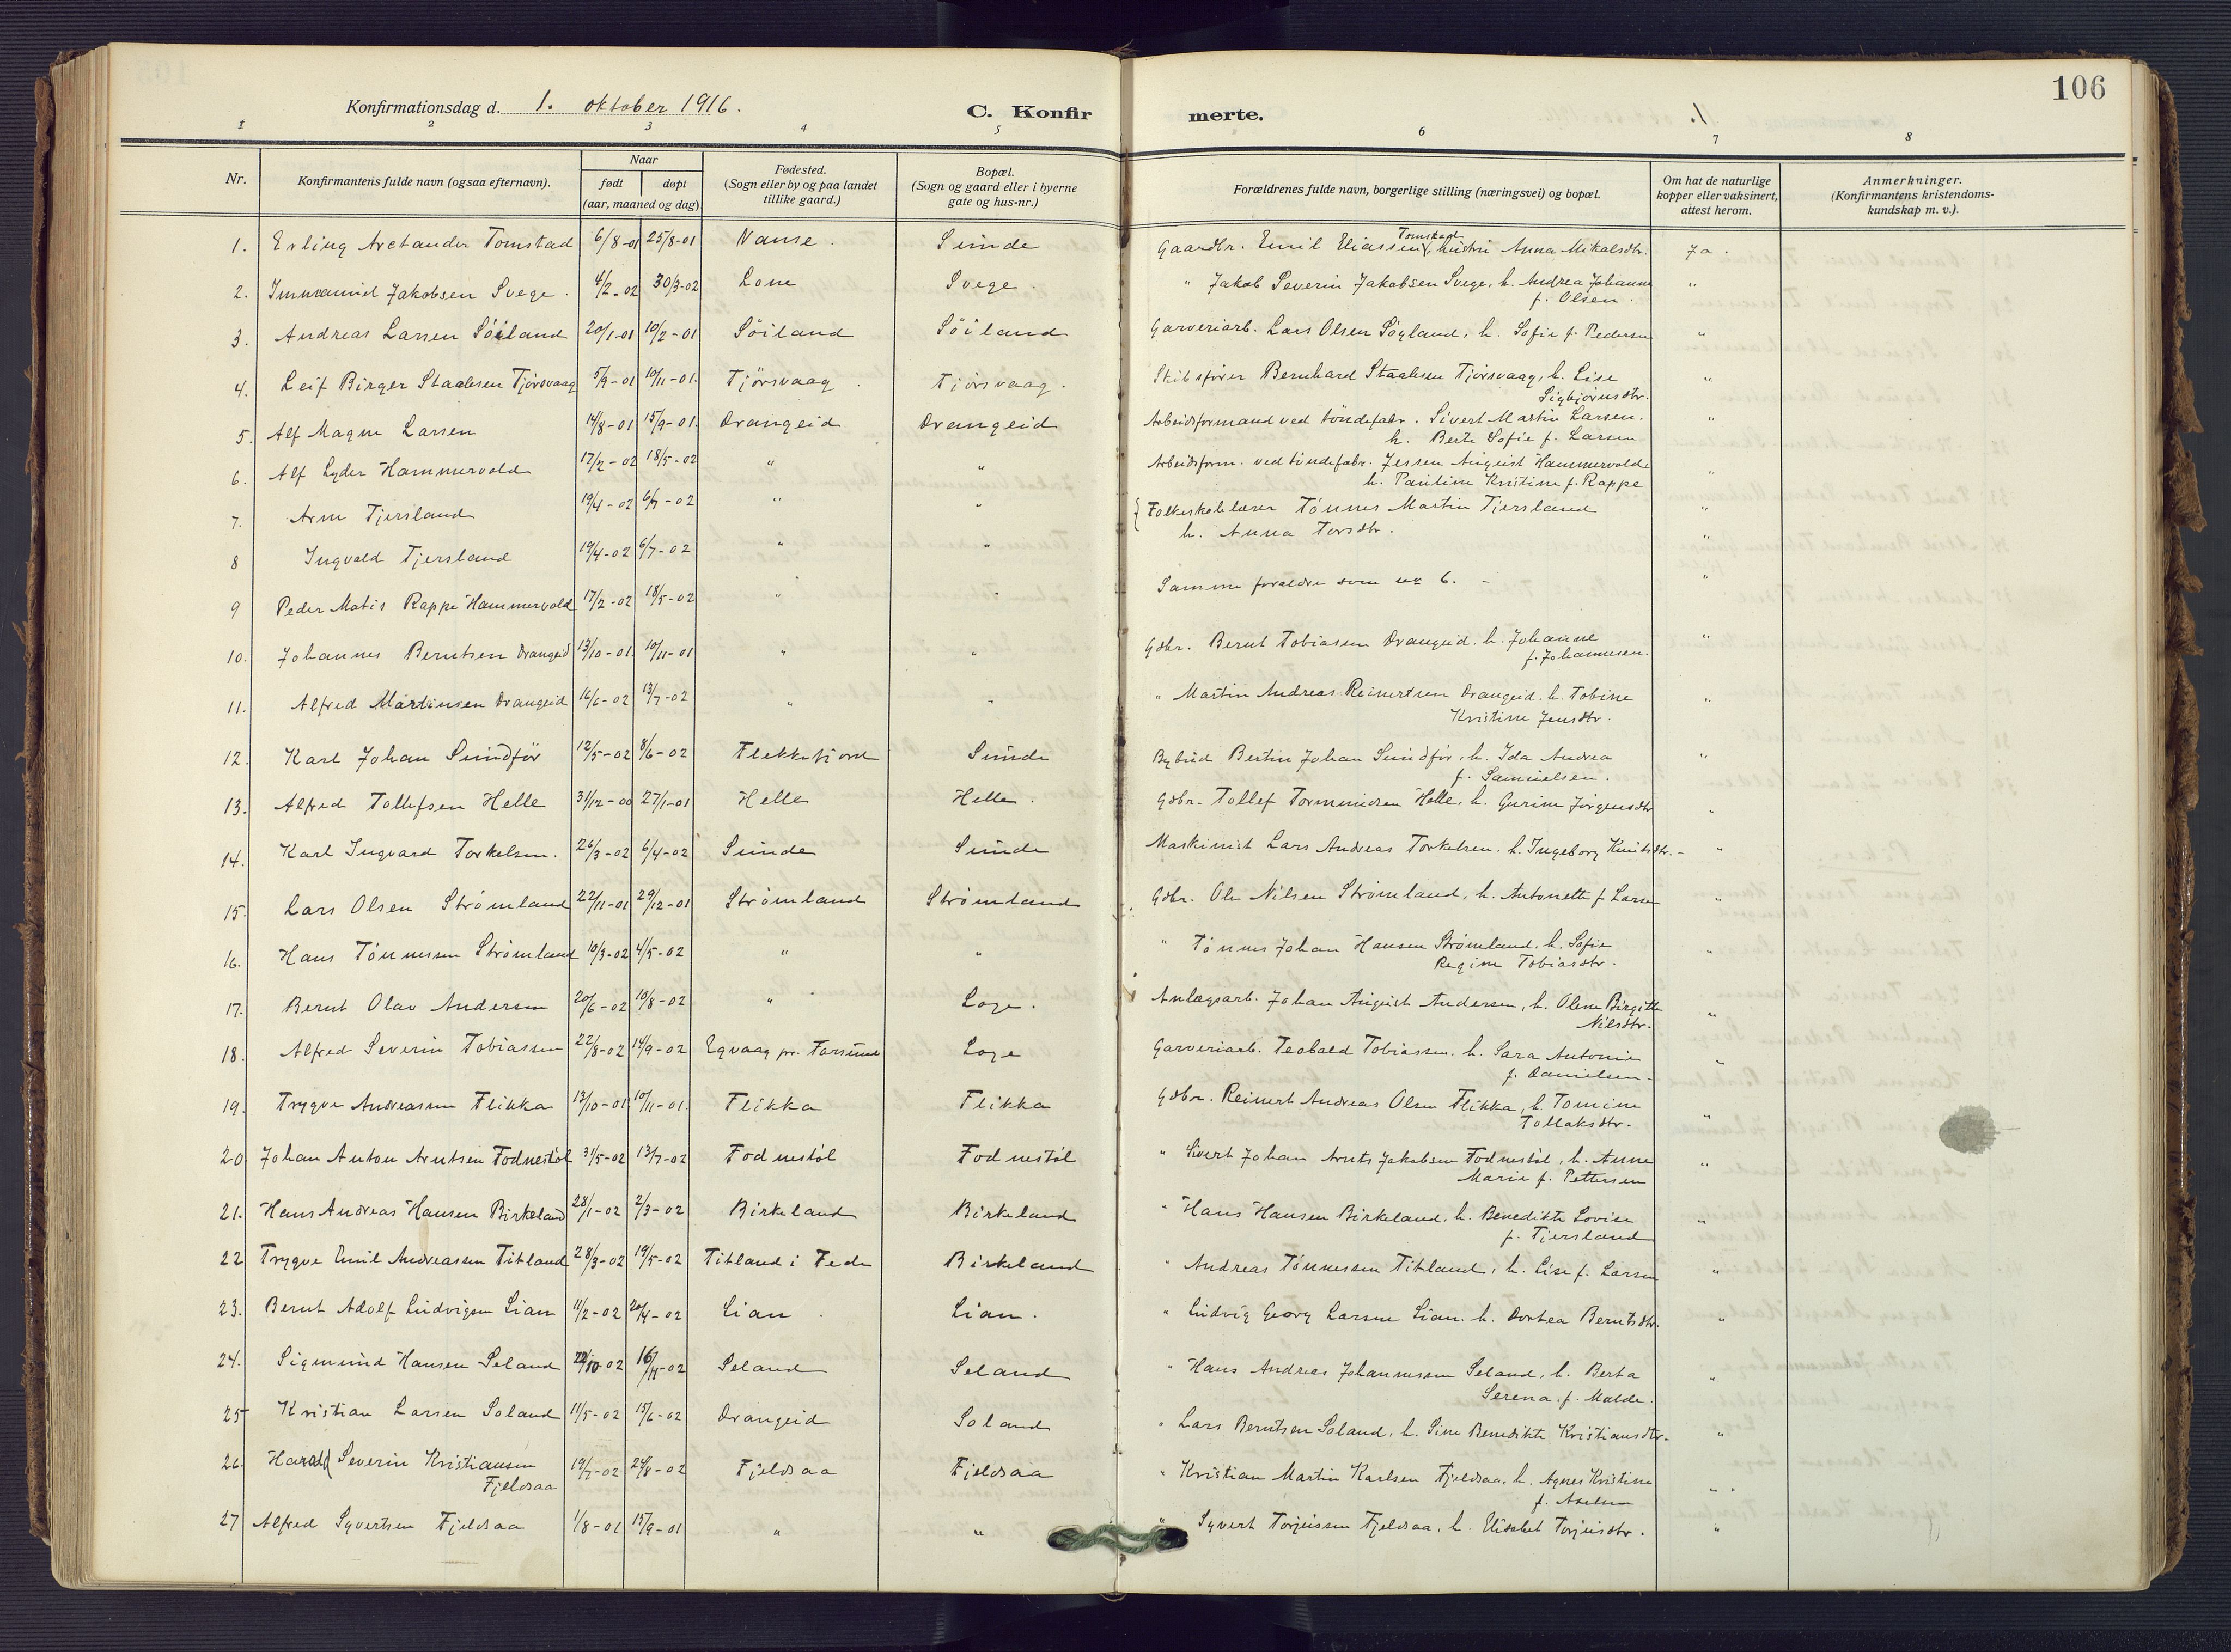 106
Konfirmationsdag d. 1. oktober 1916.
C. Konfirmerte.
1 2 3 4 5 6 7 8
Nr.
Konfirmantens fulde navn (ogsaa efternavn).
Naar
født døpt
(aar, maaned og dag)
Fødested.
(Sogn eller by og paa landet
tillike gaard.)
Bopæl.
(Sogn og gaard eller i byerne
gate og hus-nr.)
Forældrenes fulde navn, borgerlige stilling (næringsvei) og bopæl.
Om hat de naturlige
kopper eller vaksinert,
attest herom.
Anmerkninger.
(Konfirmantens kristendoms-
kundskap m. v.).
1. Erling Arctander Tomstad 6/8-01 25/8-01 Vanse. Sunde Gaardbr. Emil Eliassen Tomstad, hustru Anna Mikalsdtr. Ja.
2. Immanuel Jakobsen Svege. 4/2-02 30/3-02 Lone Svege. " Jakob Severin Jakobsen Svege, h. Andrea Johanne "
f. Olsen.
3. Andreas Larsen Söiland 20/1-01 10/2-01 Söiland Söiland Garveriarb. Lars Olsen Söyland, h. Sofie f. Pedersen "
4. Leif Birger Staalesen Tjörsvaag 5/9-01 10/11-01. Tjörsvaag. Tjörsvaag. Skibsfører Bernhard Staalesen Tjörsvaag, h. Lise "
Sigbjörnsdtr.
5. Alf Magne Larsen 14/8-01 15/9-01. Drangeid Drangeid Arbeidsformand ved töndefabr. Sivert Martin Larsen. "
h. Berte Sofie f. Larsen
6. Alf Lyder Hammervold 17/2-02 18/5-02 " " Arbeidsform. ved töndefabr. Jessen August Hammervold "
h. Pauline Kristine f. Rappe
7. Arne Tjersland 19/4-02 6/7-02 " " Folkeskolelærer Tönnes Martin Tjersland "
h. Anna Torsdtr.
8 Ingvald Tjersland 19/4-02 6/7-02 " " "
9 Peder Matis Rappe Hammervold 17/2-02 18/5-02 " " Samme foraldre som nr 6. - "
10. Johannes Berntsen Drangeid 13/10-01. 10/11-01 " " Gdbr. Bernt Tobiassen Drangeid. h. Johanne "
f. Johannesen.
11. Alfred Martinsen Drangeid 16/6-02 13/7-02 " " " Martin Andreas Reinertsen Drangeid. h. Tobine "
Kristine Jensdtr.
12. Karl Johan Sundför 12/5-02 8/6-02 Flekkefjord Sunde Bybud Bertin Johan Sundför, h. Ida Andrea "
f. Samuelsen.
13. Alfred Tollefsen Helle 31/12-00 27/1-01 Helle Helle. Gdbr. Tollef Tormundsen Helle, h. Gurine Jörgensdtr "
14. Karl Ingvard Torkelsen. 26/3-02 6/4-02 Sunde Sunde Maskinist Lars Andreas Torkelsen. h. Ingeborg Knutsdtr. "
15. Lars Olsen Strömland 22/11-01 29/12-01 Strömland Strömland Gdbr. Ole Nilsen Strömland, h. Antonette f Larsen "
16. Hans Tönnesen Strömland 10/3-02 4/5-02 " " " Tönnes Johan Hansen Strömland. h. Sofie "
Regine Tobiasdtr.
17. Bernt Olav Andersen 20/6-02 10/8-02 " Loge. Anlægsarb. Johan August Andersen, h. Oline Birgitte "
Nilsdtr.
18. Alfred Severin Tobiassen 22/8-02 14/9-02 Egvaag pr. Farsund Loge Garveriarb. Teobald Tobiassen. h. Sara Antonie "
f. Danielsen-
19. Trygve Andreassen Flikka 13/10-01 10/11-01. Flikka Flikka Gdbr. Reinert Andreas Olsen Flikka, h. Tomine "
Tollaksdtr.
20 Johan Anton Arntsen Fodnestöl 31/5-02 13/7-02 Fodnestöl Fodnestöl " Sivert Johan Arnts Jakobsen Fodnestöl, h. Anne "
Marie f. Pettersen
21. Hans Andreas Hansen Birkeland 28/1-02 2/3-02 Birkeland Birkeland " Hans Hansen Birkeland, h. Benedikte Lovise "
f. Tjersland
22 Trygve Emil Andreassen Titland 28/3-02 19/5-02 Titland i Fede Birkeland " Andreas Tönnessen Titland, h. Lise f. Larsen "
23. Bernt Adolf Ludvigsen Lian 11/2-02 20/4-02 Lian. Lian. " Ludvig Georg Larsen Lian. h. Dortea Berntsdtr. "
24. Sigmund Hansen Seland 22/10-02 16/11-02 Seland Seland " Hans Andreas Johannesen Seland, h. Berta "
Serena f. Malde.
25 Kristian Larsen Soland 11/5-02 15/6-02 Drangeid Soland " Lars Berntsen Soland, h. Sine Benedikte Kristiansdtr. "
26. Harald Severin Kristiansen 19/7-02 24/8-02 Fjeldsaa Fjeldsaa " Kristian Martin Karlsen Fjeldsaa, h. Agnes Kristine "
Fjeldsaa f. Axelsen
27 Alfred Syvertsen Fjeldsaa 1/8-01 15/9-01 " " " Syvert Torjussen Fjeldsaa, h. Elisabet Torjusdtr. "